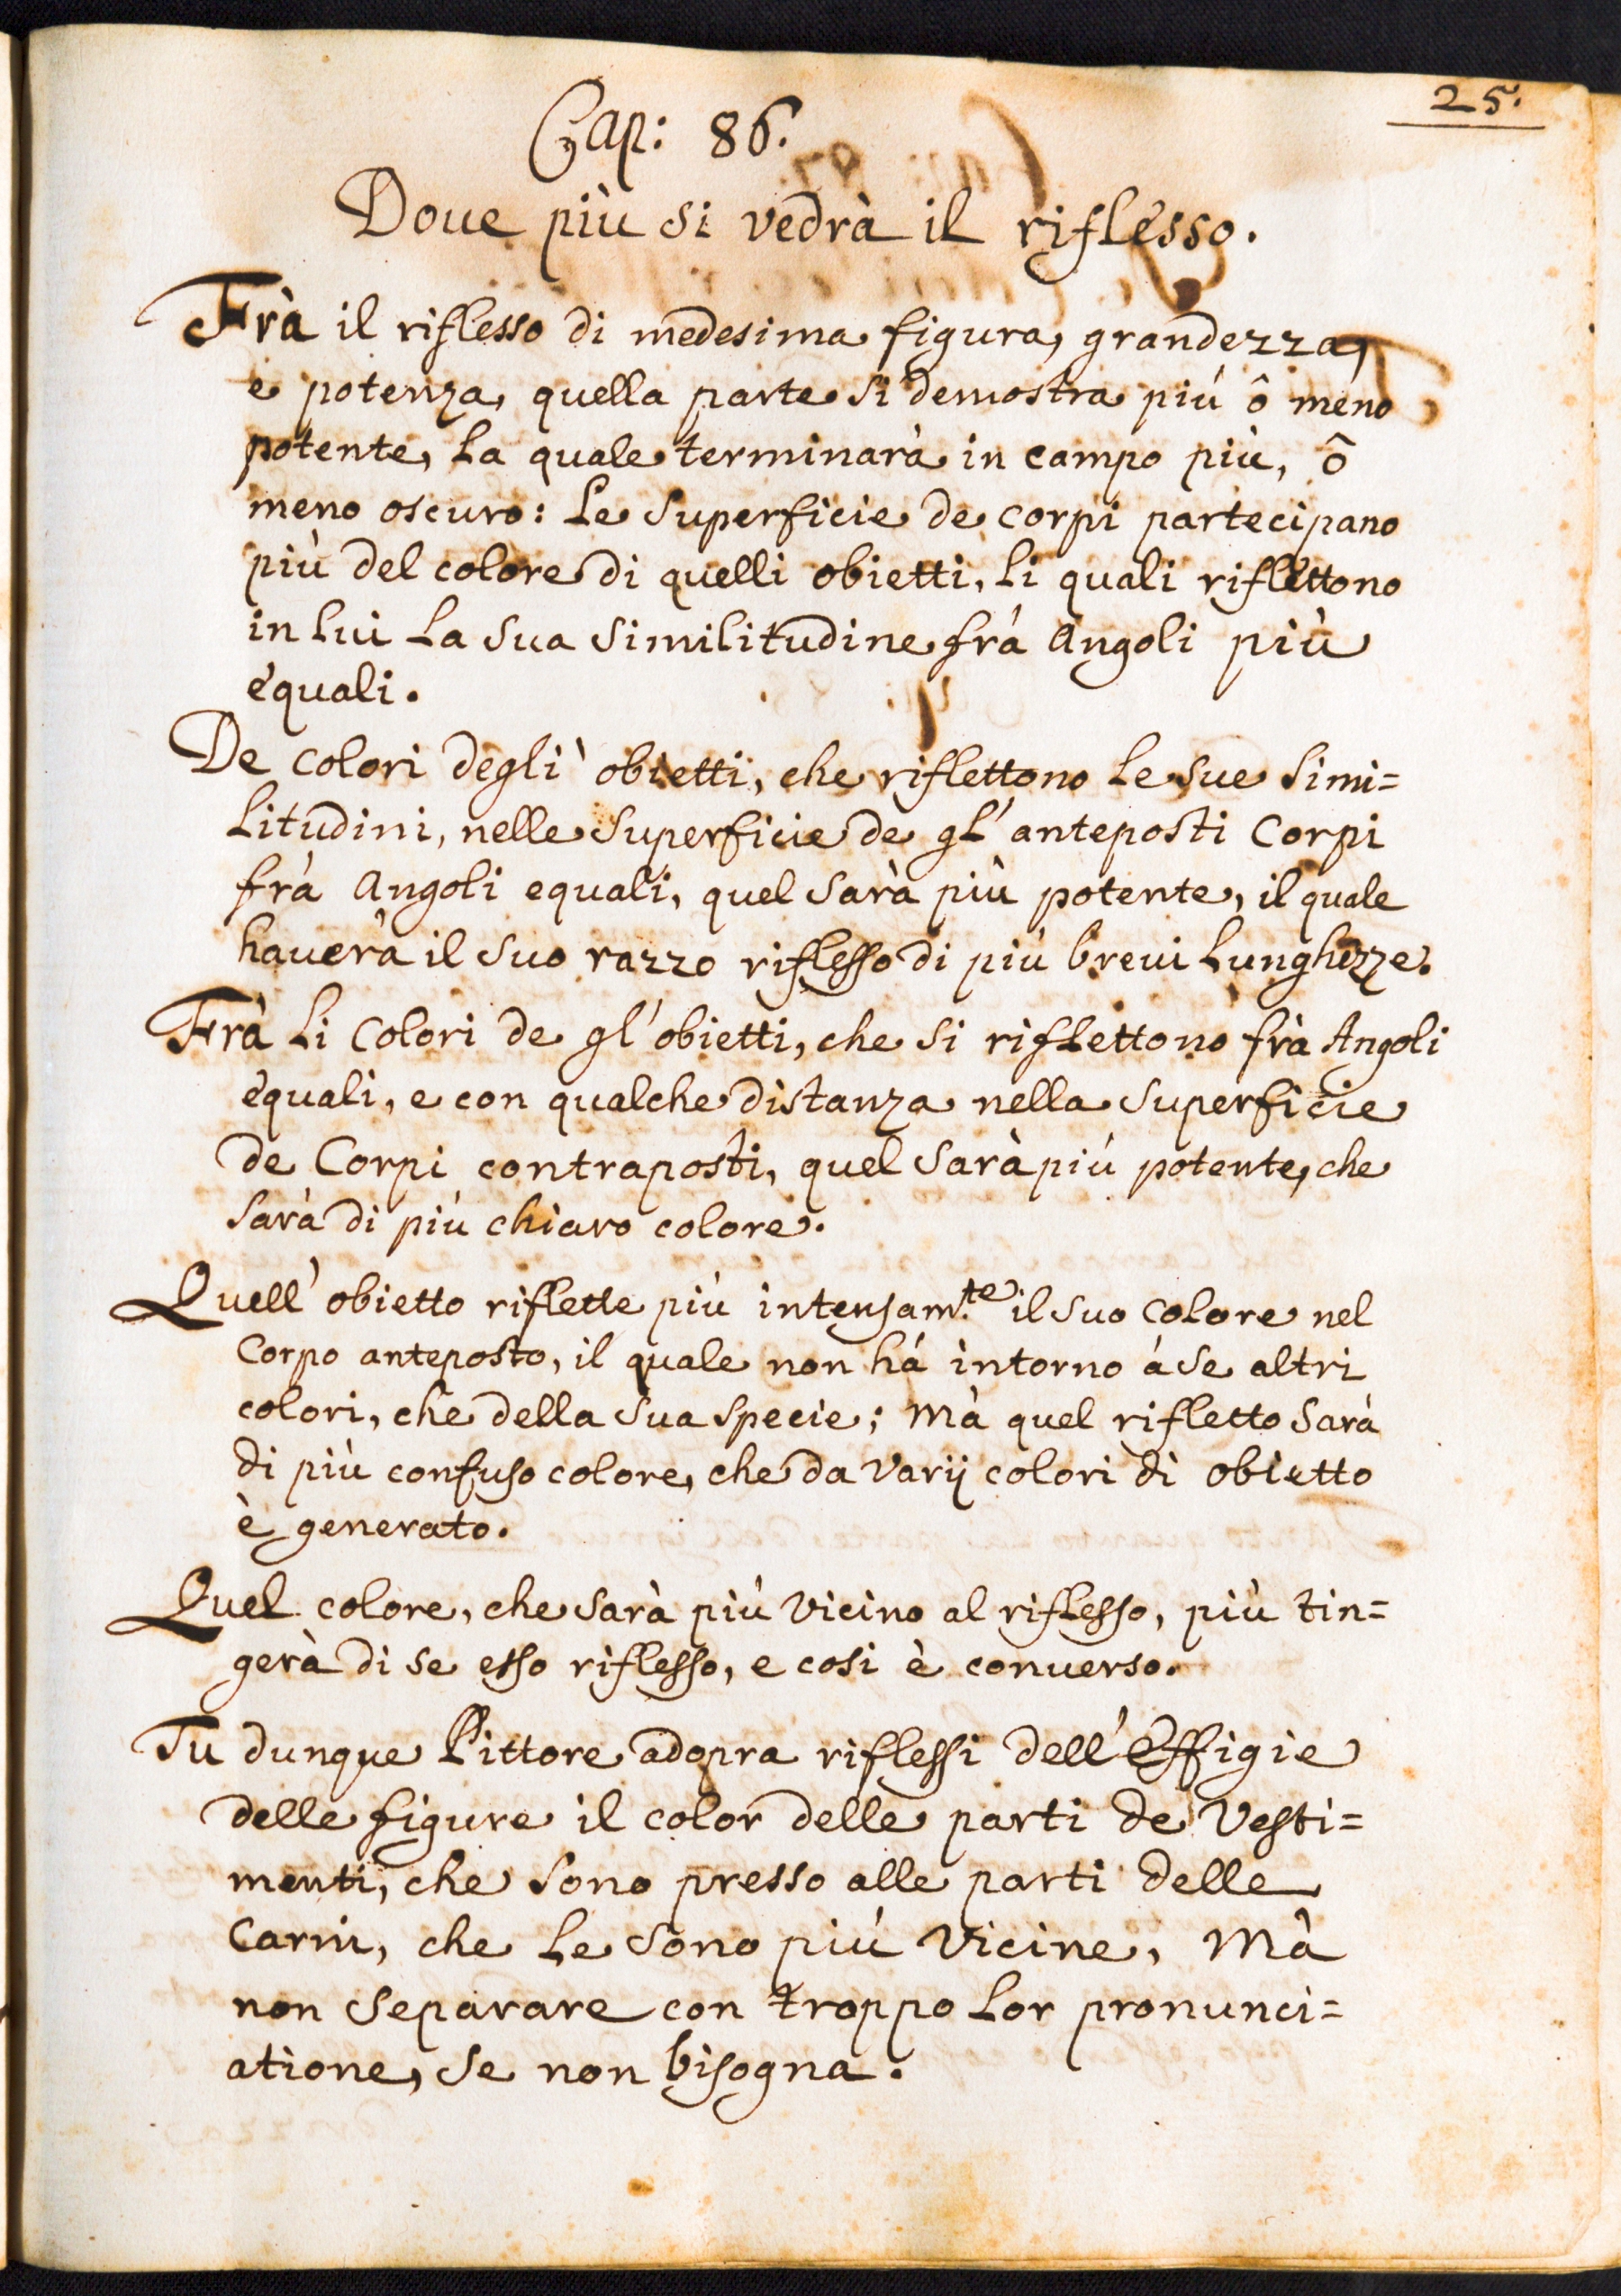 25.
Cap: 86.
Doue più si vedrà il riflesso.
Frà il riflesso di medesima figura, grandezza,
e potenza, quella parte si demostra più ô meno
potente, la quale terminarà in campo più, ô
meno oscuro: Le superficie de corpi partecipano
più del colore di quelli obietti, li quali riflettono
in lui la sua similitudine frà Angoli più
equali.
De colori degli obietti, che riflettono le sue simi=
litudini, nelle superficie de gl' anteposti Corpi
frà Angoli equali, quel sarà più potente, il quale
hauerà il suo razzo riflesso di più breui lunghezze.
Frà li colori de gl' obietti, che si riflettono frà Angoli
equali, e con qualche distanza nella superficie
de Corpi contraposti, quel sarà più potente, che
sarà di più chiaro colore.
Quell' obietto riflette più intensam.te il suo colore nel
Corpo anteposto, il quale non hà intorno à se altri
colori, che della sua specie; mà quel rifletto sarà
di più confuso colore, che da varij colori di obietto
è generato.
Quel colore, che sarà più vicino al riflesso, più tin=
gerà di se esso riflesso, e cosi è conuerso.
Tu dunque Pittore adopra riflessi dell' Effigie
delle figure il color delle parti de Vesti=
menti, che sono presso alle parti delle
Carni, che le sono più vicine, Mà
non separare con troppo lor pronunci=
atione, se non bisogna.